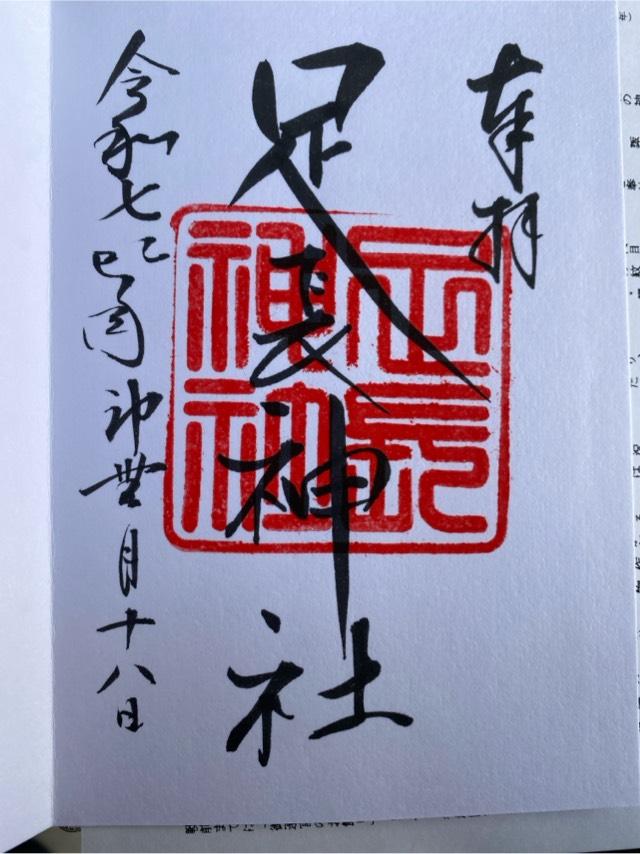 奉拝
足長神社
足長
神社
令和七乙巳
神無月十八日